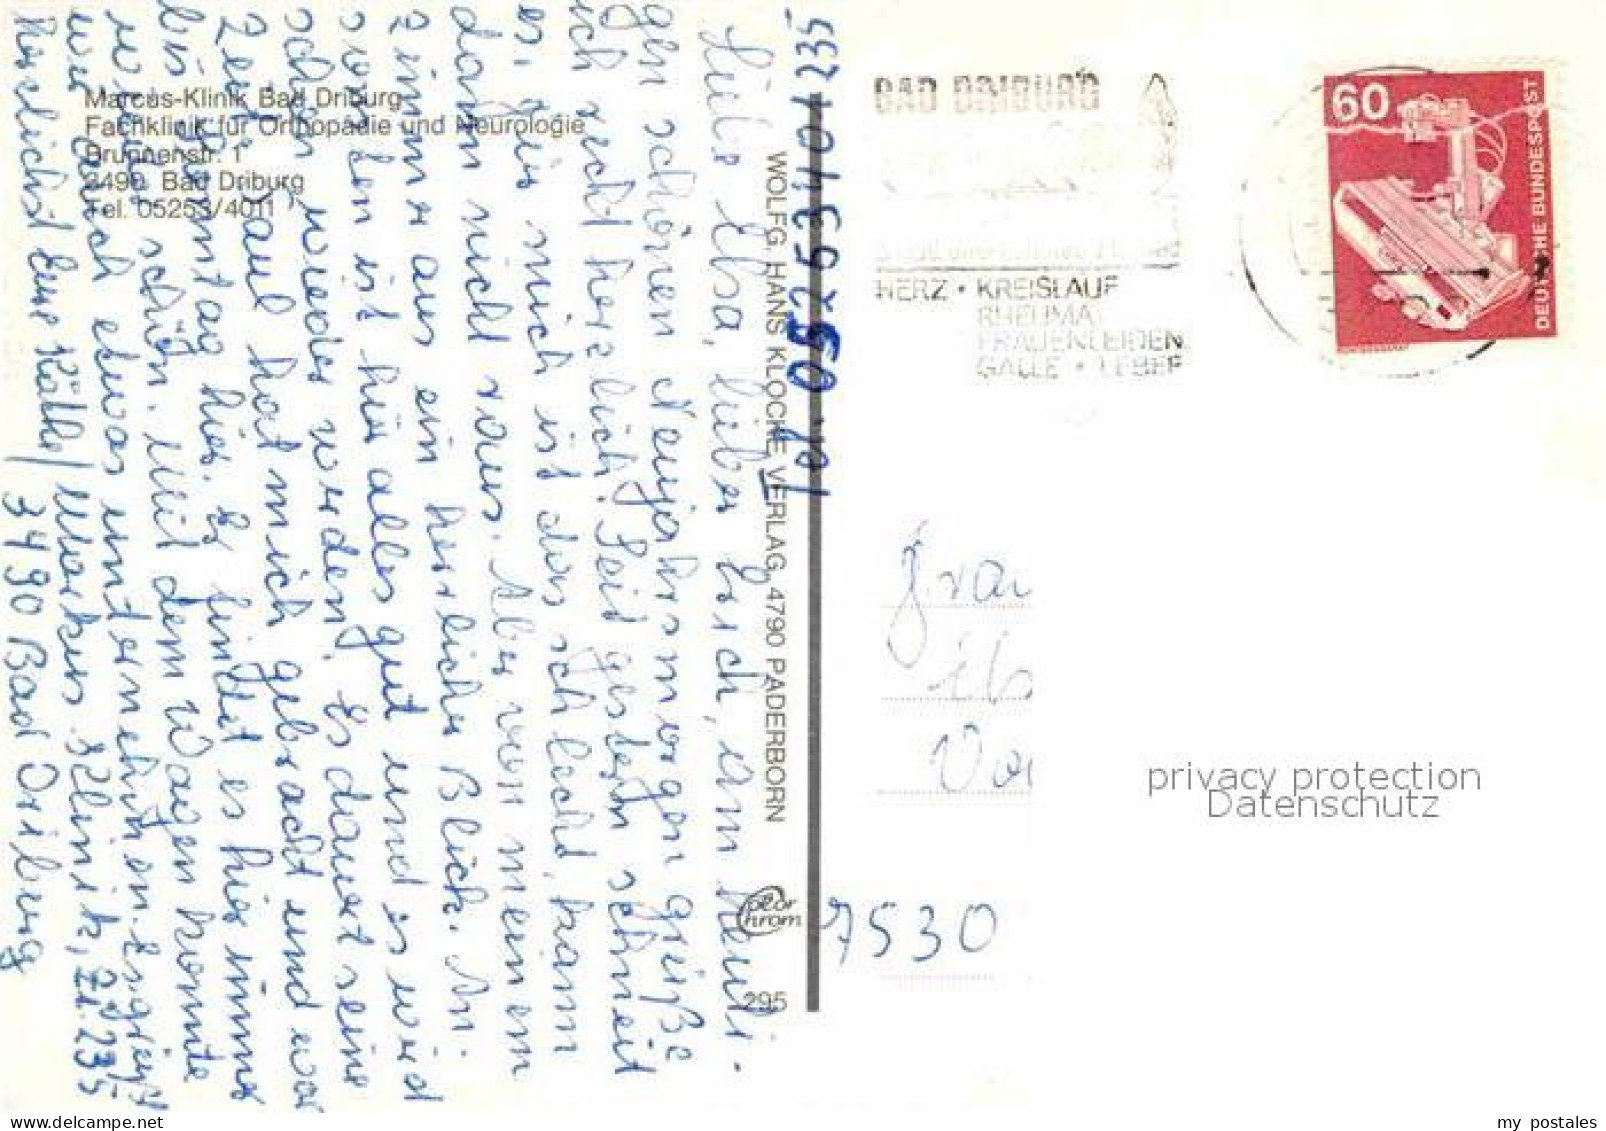 Marcus-Klinik Bad Driburg
Fachklinik für Orthopädie und Neurologie
Brunnenstr. 1
3490 Bad Driburg
Tel. 05253/4011
Liebe Elsa, lieber Erich, am heuti-
gen schönen Neujahrsmorgen grüße
ich recht herzlich. Seit gestern schneit
es, für mich ist das schlecht, kann
dann nicht raus. Aber von meinem
Zimmer aus ein herrlicher Blick. An-
sonsten ist hier alles gut und es wird
schon wieder werden. Es dauert seine
Zeit. Paul hat mich gebracht und war
bis Sonntag hier. Er findet es hier immer
wieder schön. Mit dem Wagen konnte
wir auch etwas unternehmen. Es grüßt
herzlichst Eure Käthe / Markus Klinik, Zi. 235
3490 Bad Driburg
WOLFG. HANS KLOCKE VERLAG, 4790 PADERBORN
color
chrom
295
Tel. 05253/401 235
BAD DRIBURG
HERZ • KREISLAUF
RHEUMA
FRAUENLEIDEN
GALLE • LEBER
60
DEUTSCHE BUNDESPOST
Frau
7530
privacy protection
Datenschutz
my postales